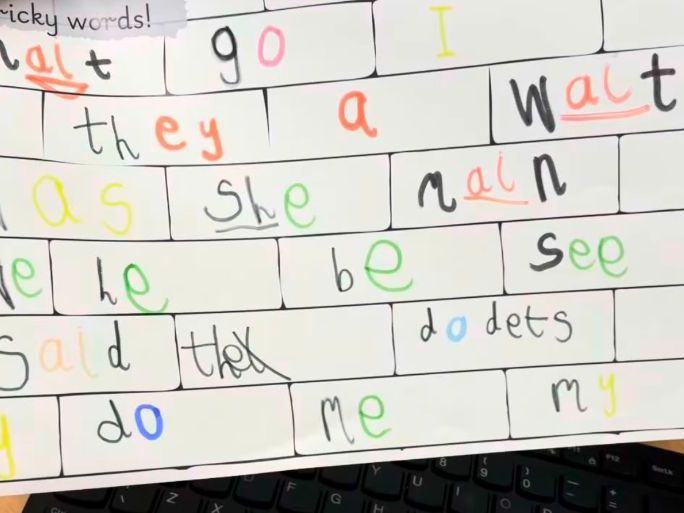 ricky words!
ait go I
they a wait
as she rain
e he be see
said do dets
y do me my